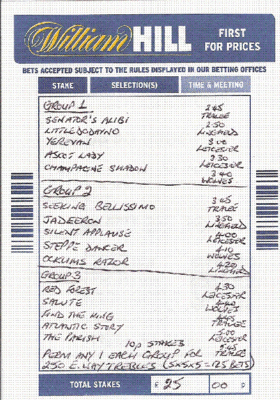 William HILL
FIRST
FOR PRICES
BETS ACCEPTED SUBJECT TO THE RULES DISPLAYED IN OUR BETTING OFFICES
STAKE SELECTION(S) TIME & MEETING
GROUP 1 2.45
SENATOR'S ALIBI TRALEE
2.50
LITTLEDODAYNO LINGFIELD
3.00
YEREVAN LEICESTER
ASCOT LADY 3.30
LEICESTER
CHAMPAGNE SHADOW 3.40
WOLVES
GROUP 2
SEEKING BELLISSIMO 3.45
TRALEE
JADEERON 3.50
LINGFIELD
SILENT APPLAUSE 4.00
LEICESTER
STEPPE DANCER 4.10
WOLVES
OCKHAMS RAZOR 4.20
LINGFIELD
GROUP 3
RED FOREST 4.30
LEICESTER
SALUTE 4.40
WOLVES
FIND THE KING
TRALEE
ATLANTIC STORY 5.00
LEICESTER
THE PARISH 10p STAKES 5.45
TRALEE
PERM ANY 1 EACH GROUP FOR
250 E.WAY TREBLES (5x5x5=125 BETS)
TOTAL STAKES £ 25 00 p